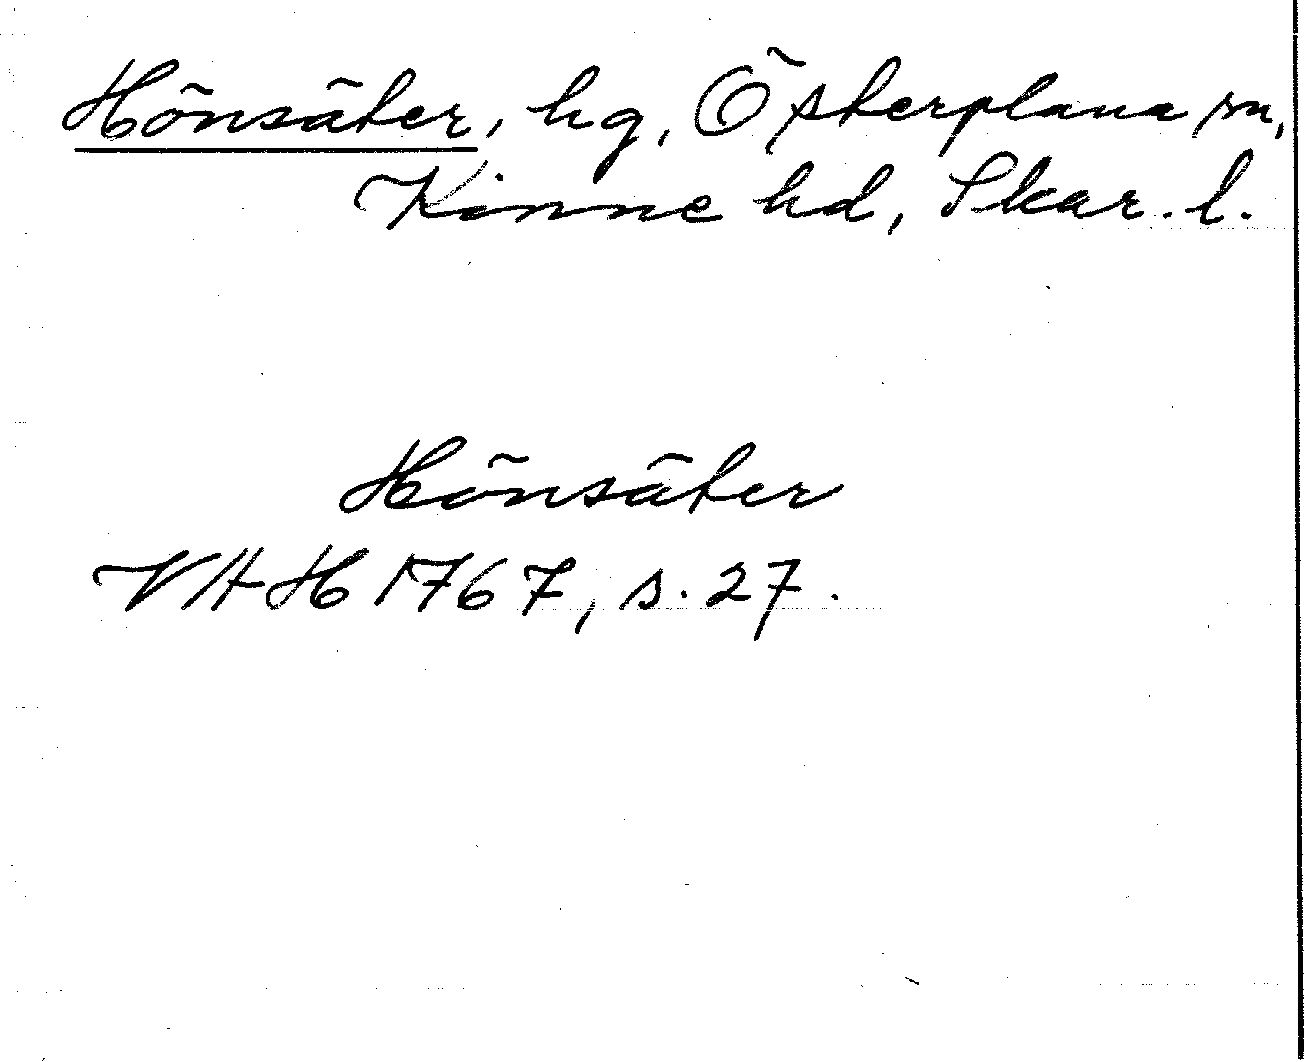 Hönsäter, hg, Österplana sn,
Kinne hd, Skar. l.
Hönsäter
VAH 1767, s. 27.